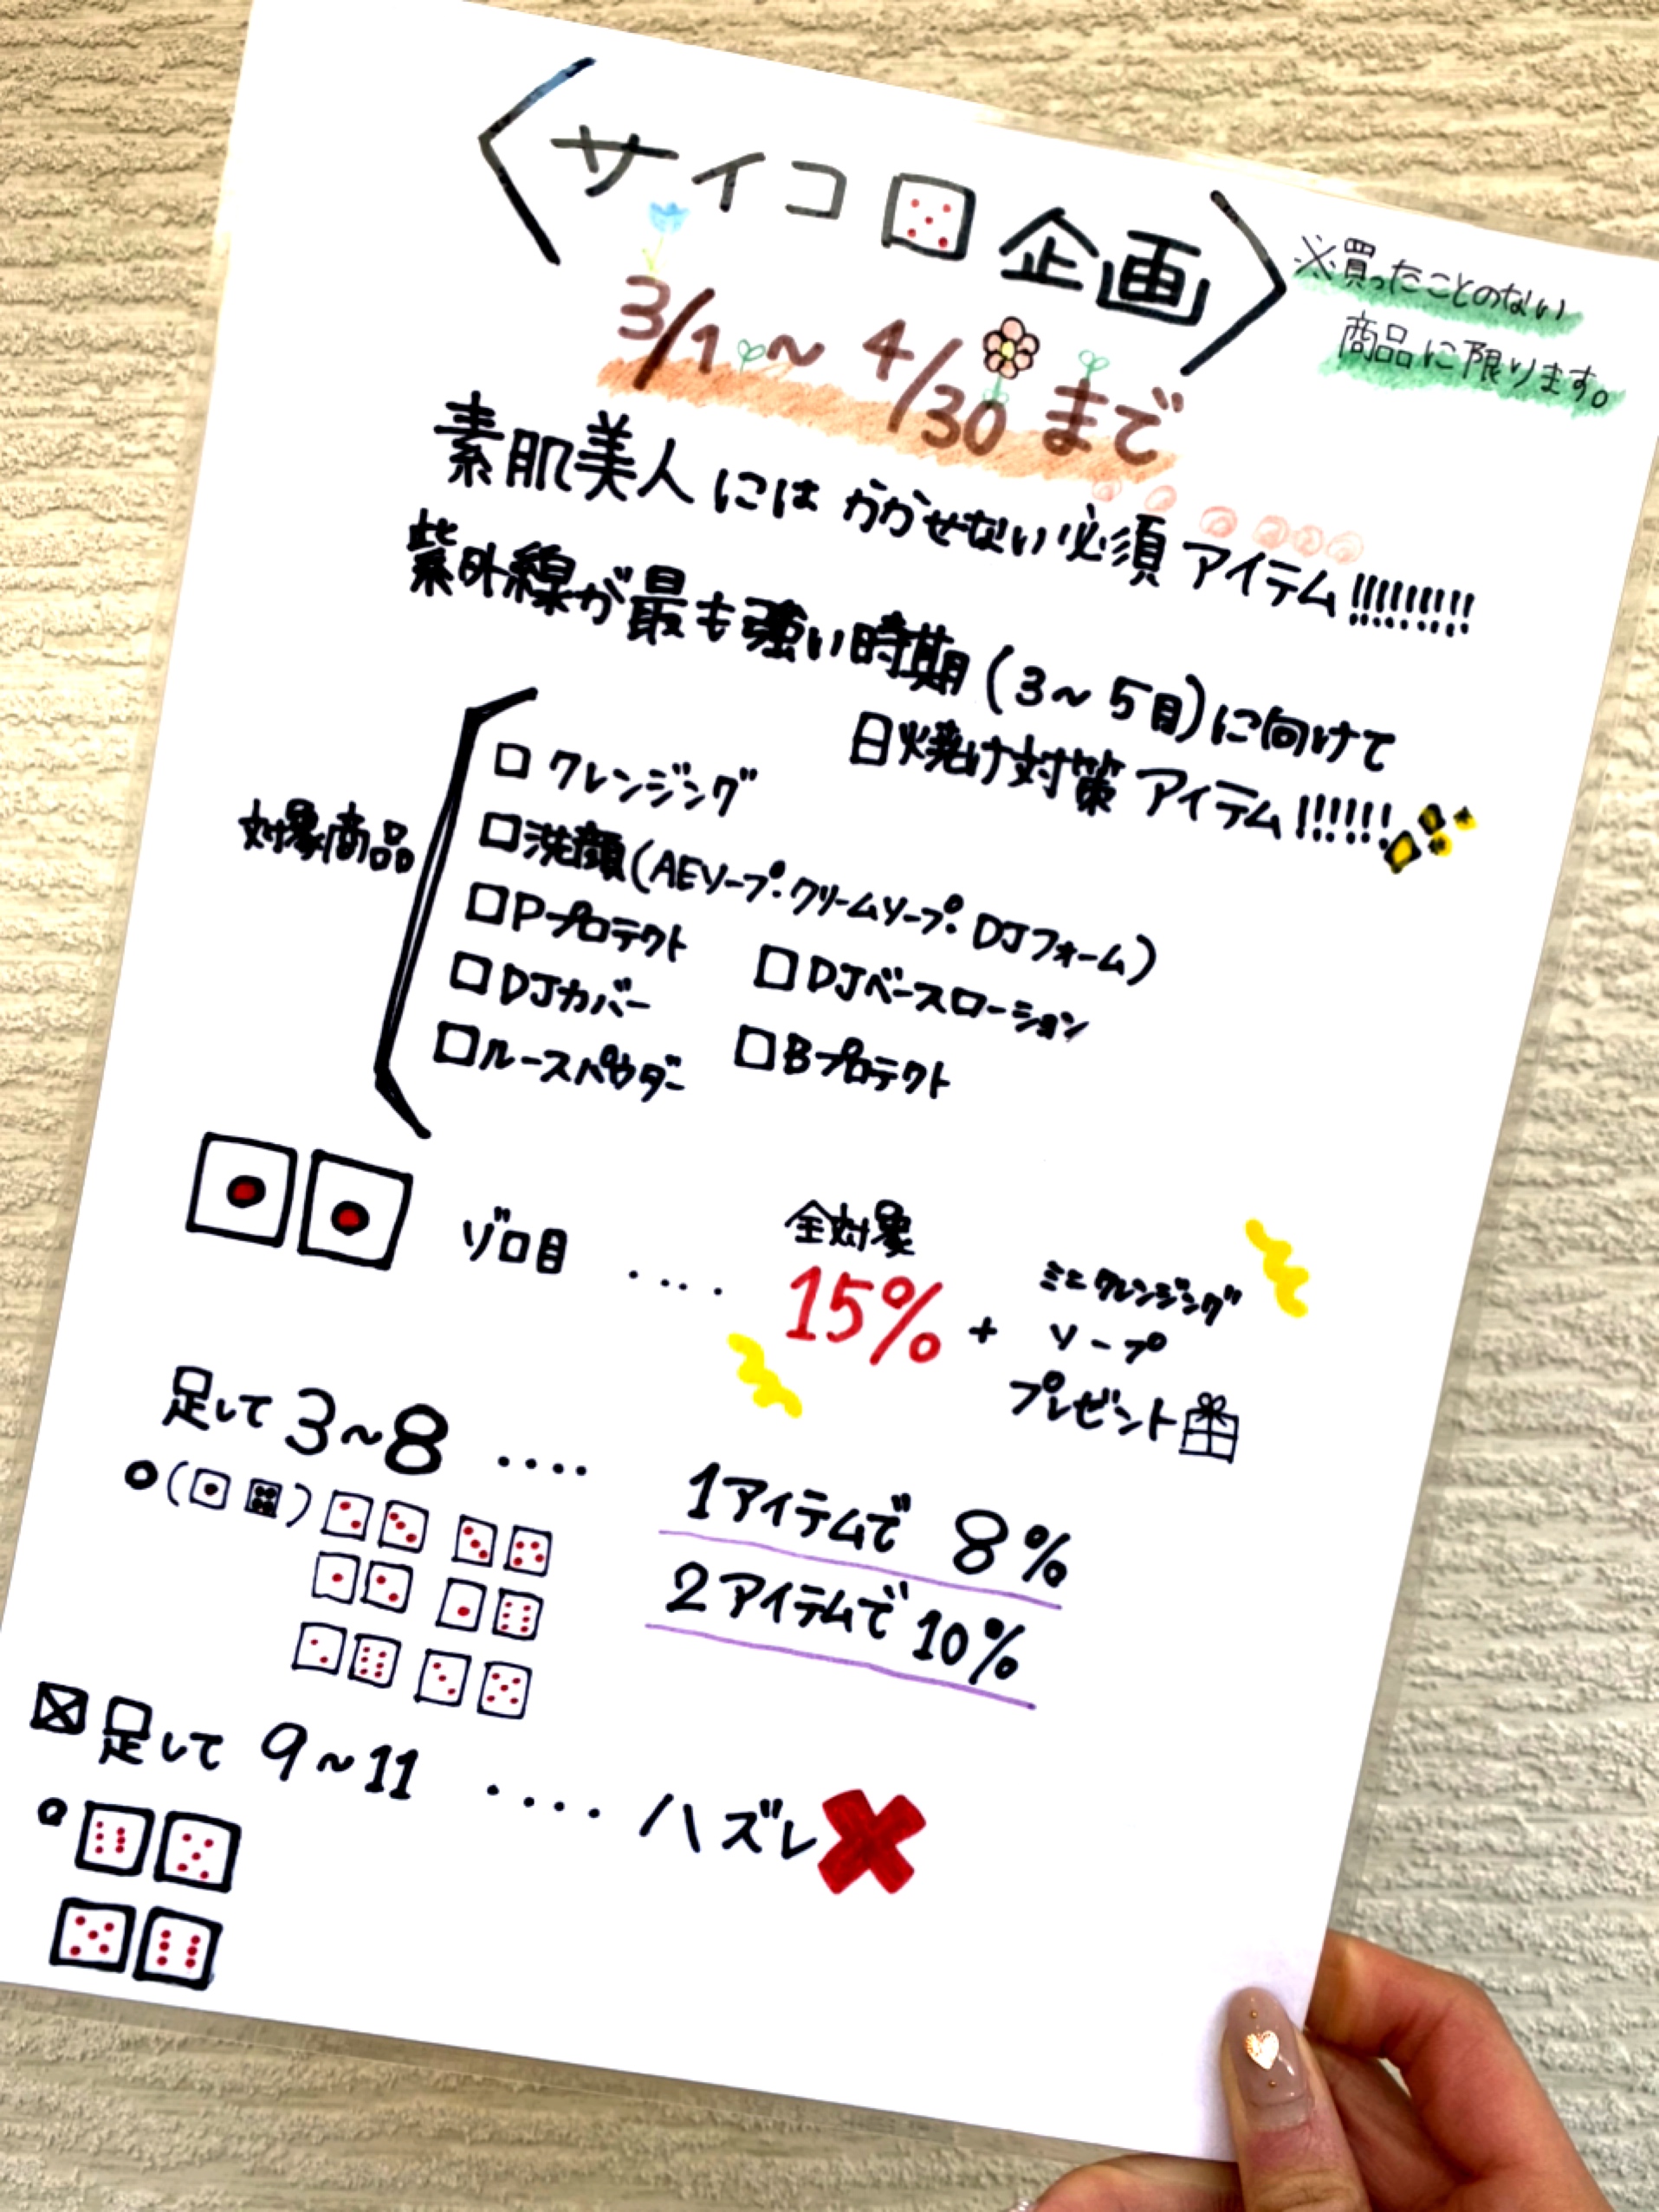 〈サイコロ企画〉
※買ったことのない
商品に限ります。
3/1〜4/30まで
素肌美人にはかかせない必須アイテム!!!!!!!!!
紫外線が最も強い時期(3〜5月)に向けて
日焼け対策アイテム!!!!!!
対象商品
□クレンジング
□洗顔(AEソープ・クリームソープ・DJフォーム)
□Pプロテクト □DJベースローション
□DJカバー □Bプロテクト
□ルースパウダー
ゾロ目 ‥‥ 全対象 15% + ミニクレンジング
ソープ
プレゼント
足して3〜8 ‥‥ 1アイテムで 8%
2アイテムで 10%
足して 9〜11 ‥‥ ハズレ